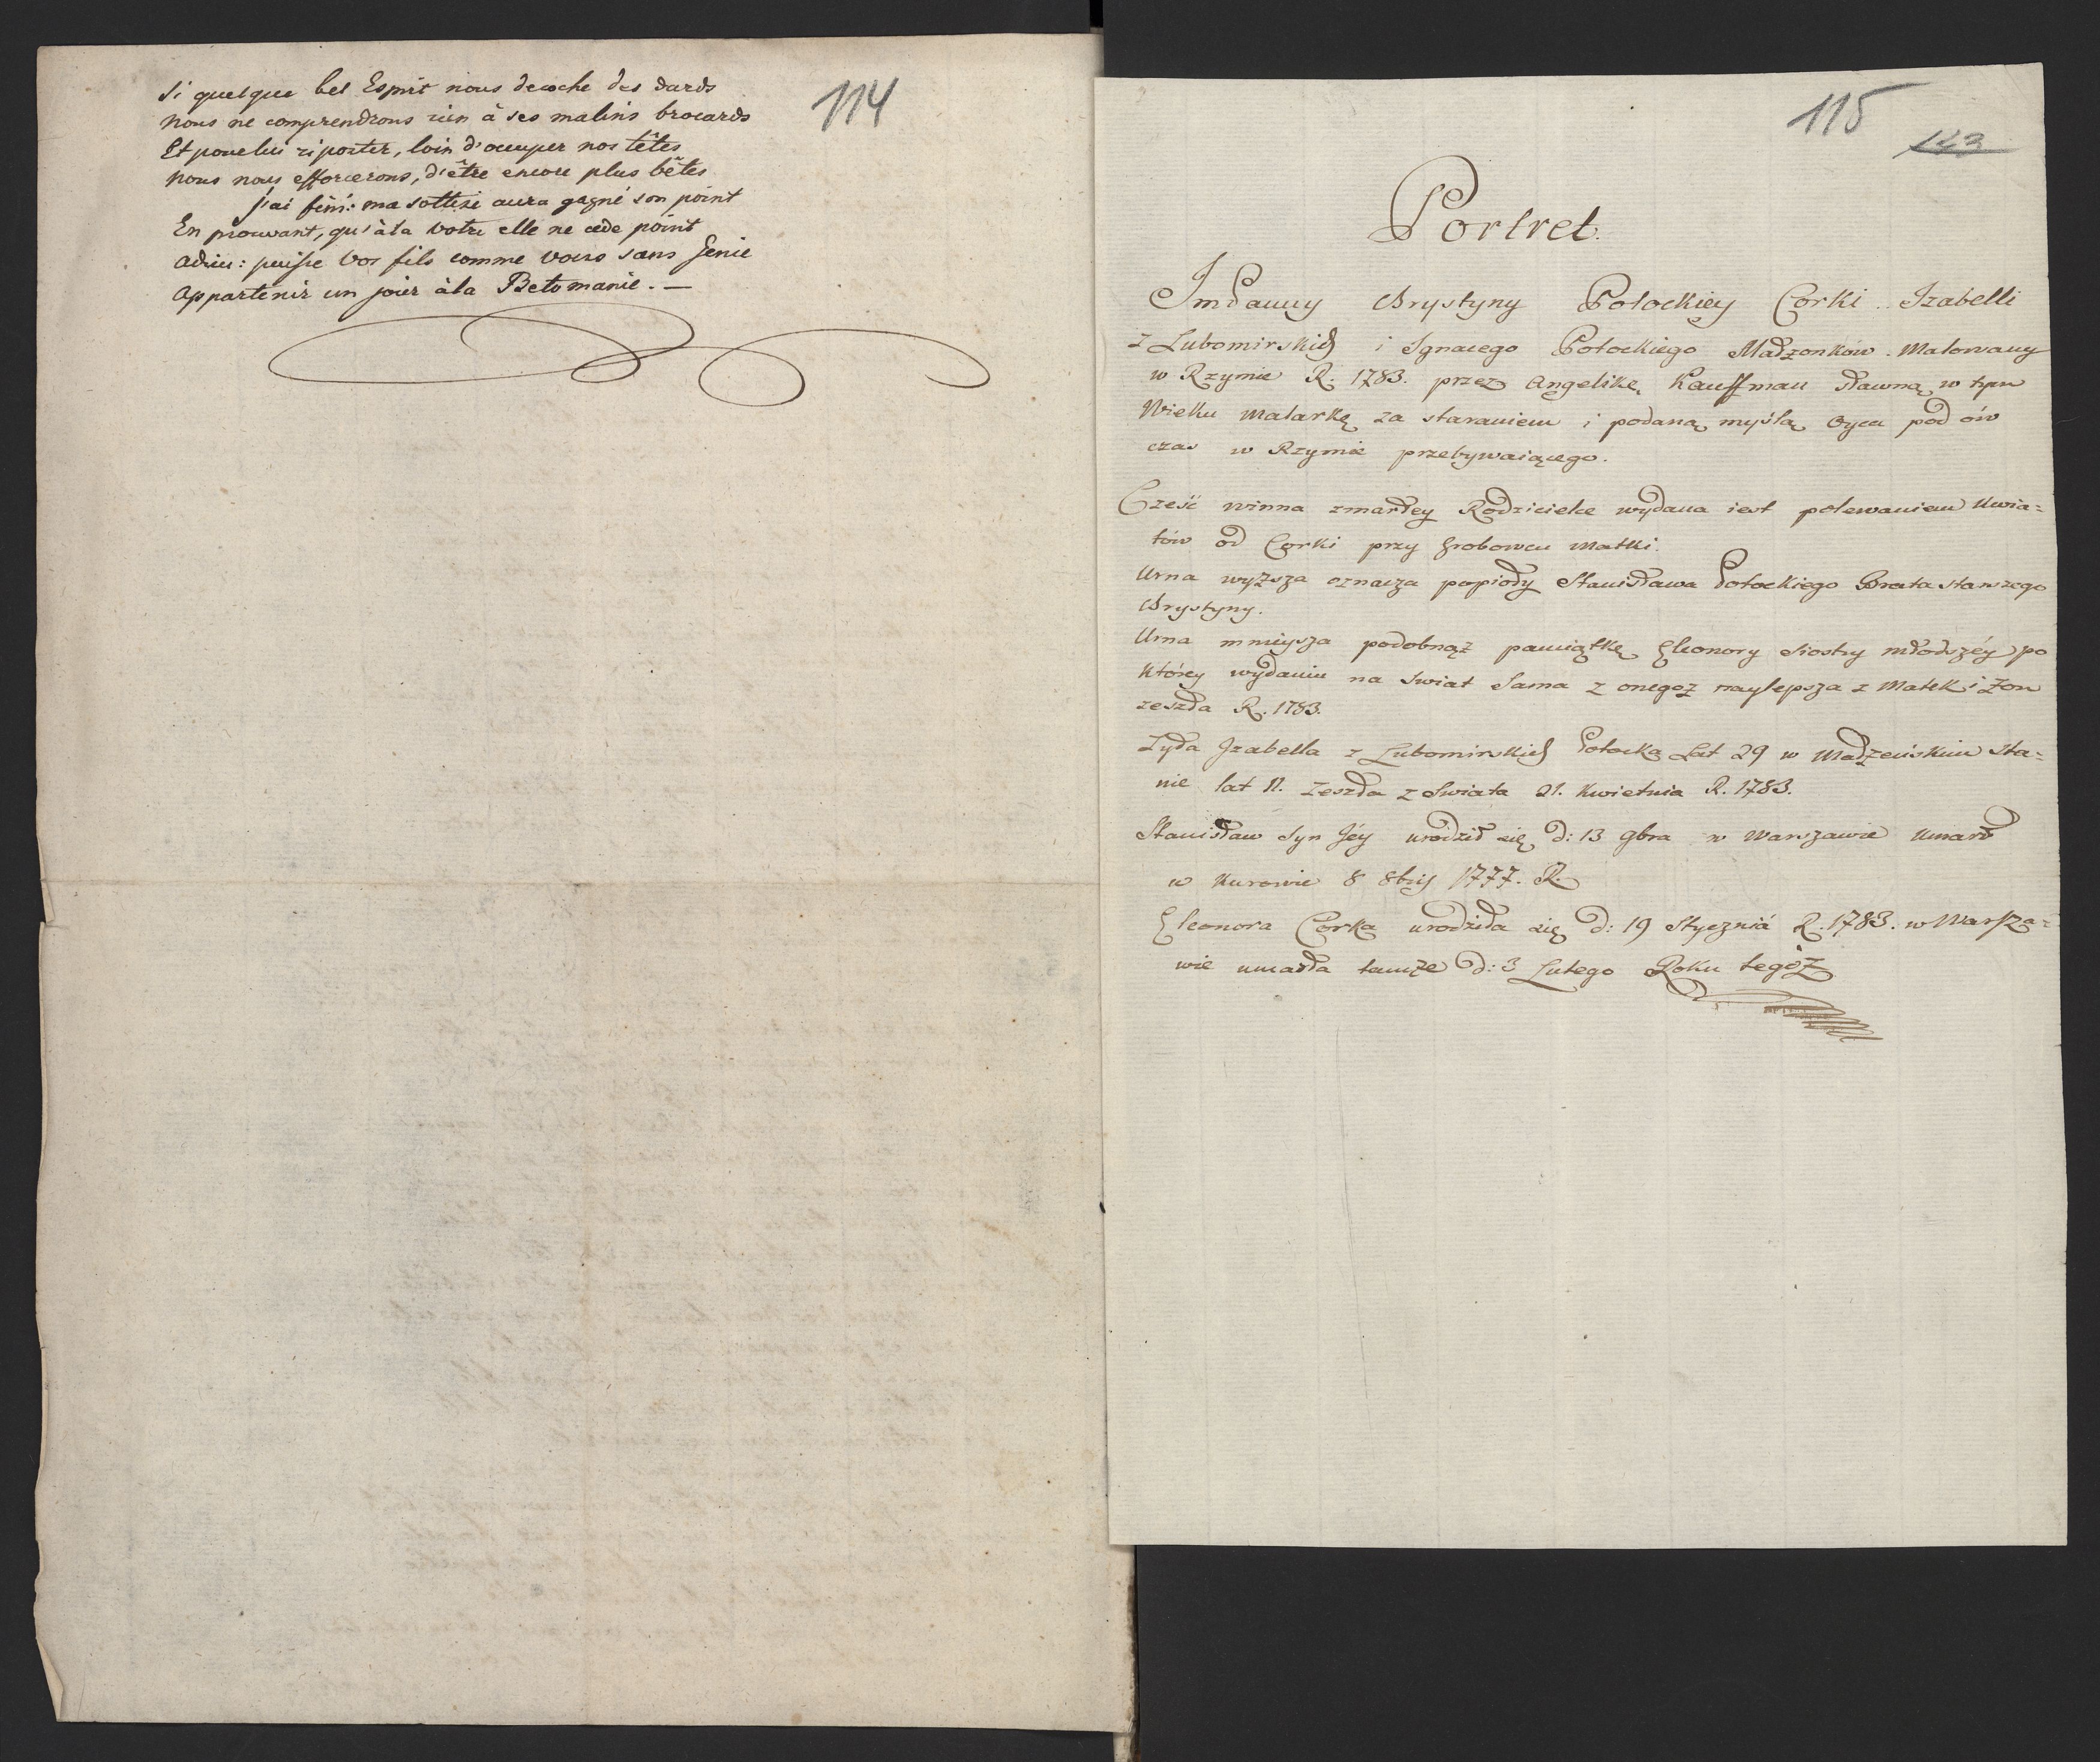 114
Si quelque bel Esprit nous decoche des dards
Nous ne comprendrons rien à ses malins brocards
Et pour lui riposter, loin d'occuper nos têtes
Nous nous efforcerons, d'être encore plus bêtes
j'ai fini: ma sottise aura gagné son point
En prouvant, qu'à la votre elle ne cede point
Adieu: puisse vos fils comme vous sans Genie
Appartenir un jour à la Betomanie. —
115
123
Portret.
Imdanny Krystyny Potockiey Corki Izabelli
z Lubomirskich i Ignacego Potockiego Małżonków. Malowany
w Rzymie R. 1783. przez Angelikę Kauffman sławną w tym
Wieku Malarkę za staraniem i podaną myślą Oyca pod ów
czas w Rzymie przebywaiącego.
Cześć winna zmarłey Rodzicielce wydana iest polewaniem Kwia=
tów od Corki przy Grobowcu Matki.
Urna wyższa oznacza popioły Stanisława Potockiego Brata starszego
Krystyny.
Urna mnieysza podobnąż pamiątkę Eleonory Siostry młodszéy po
Którey wydaniu na Swiat Sama z onegoż naylepsza z Matek i żon
zeszła R. 1783.
Żyła Izabella z Lubomirskich Potocka Lat 29 w Małżeńskim Sta=
nie lat 11. Zeszła z Swiata 21. Kwietnia R. 1783.
Stanisław Syn Jéy urodził się d: 13 9bra w Warszawie Umarł
w Kurowie 8 8bris 1777. R.
Eleonora Corka urodziła się d: 19 Stycznia R. 1783. w Warsza=
wie umarła tamże d: 3 Lutego Roku tegoż